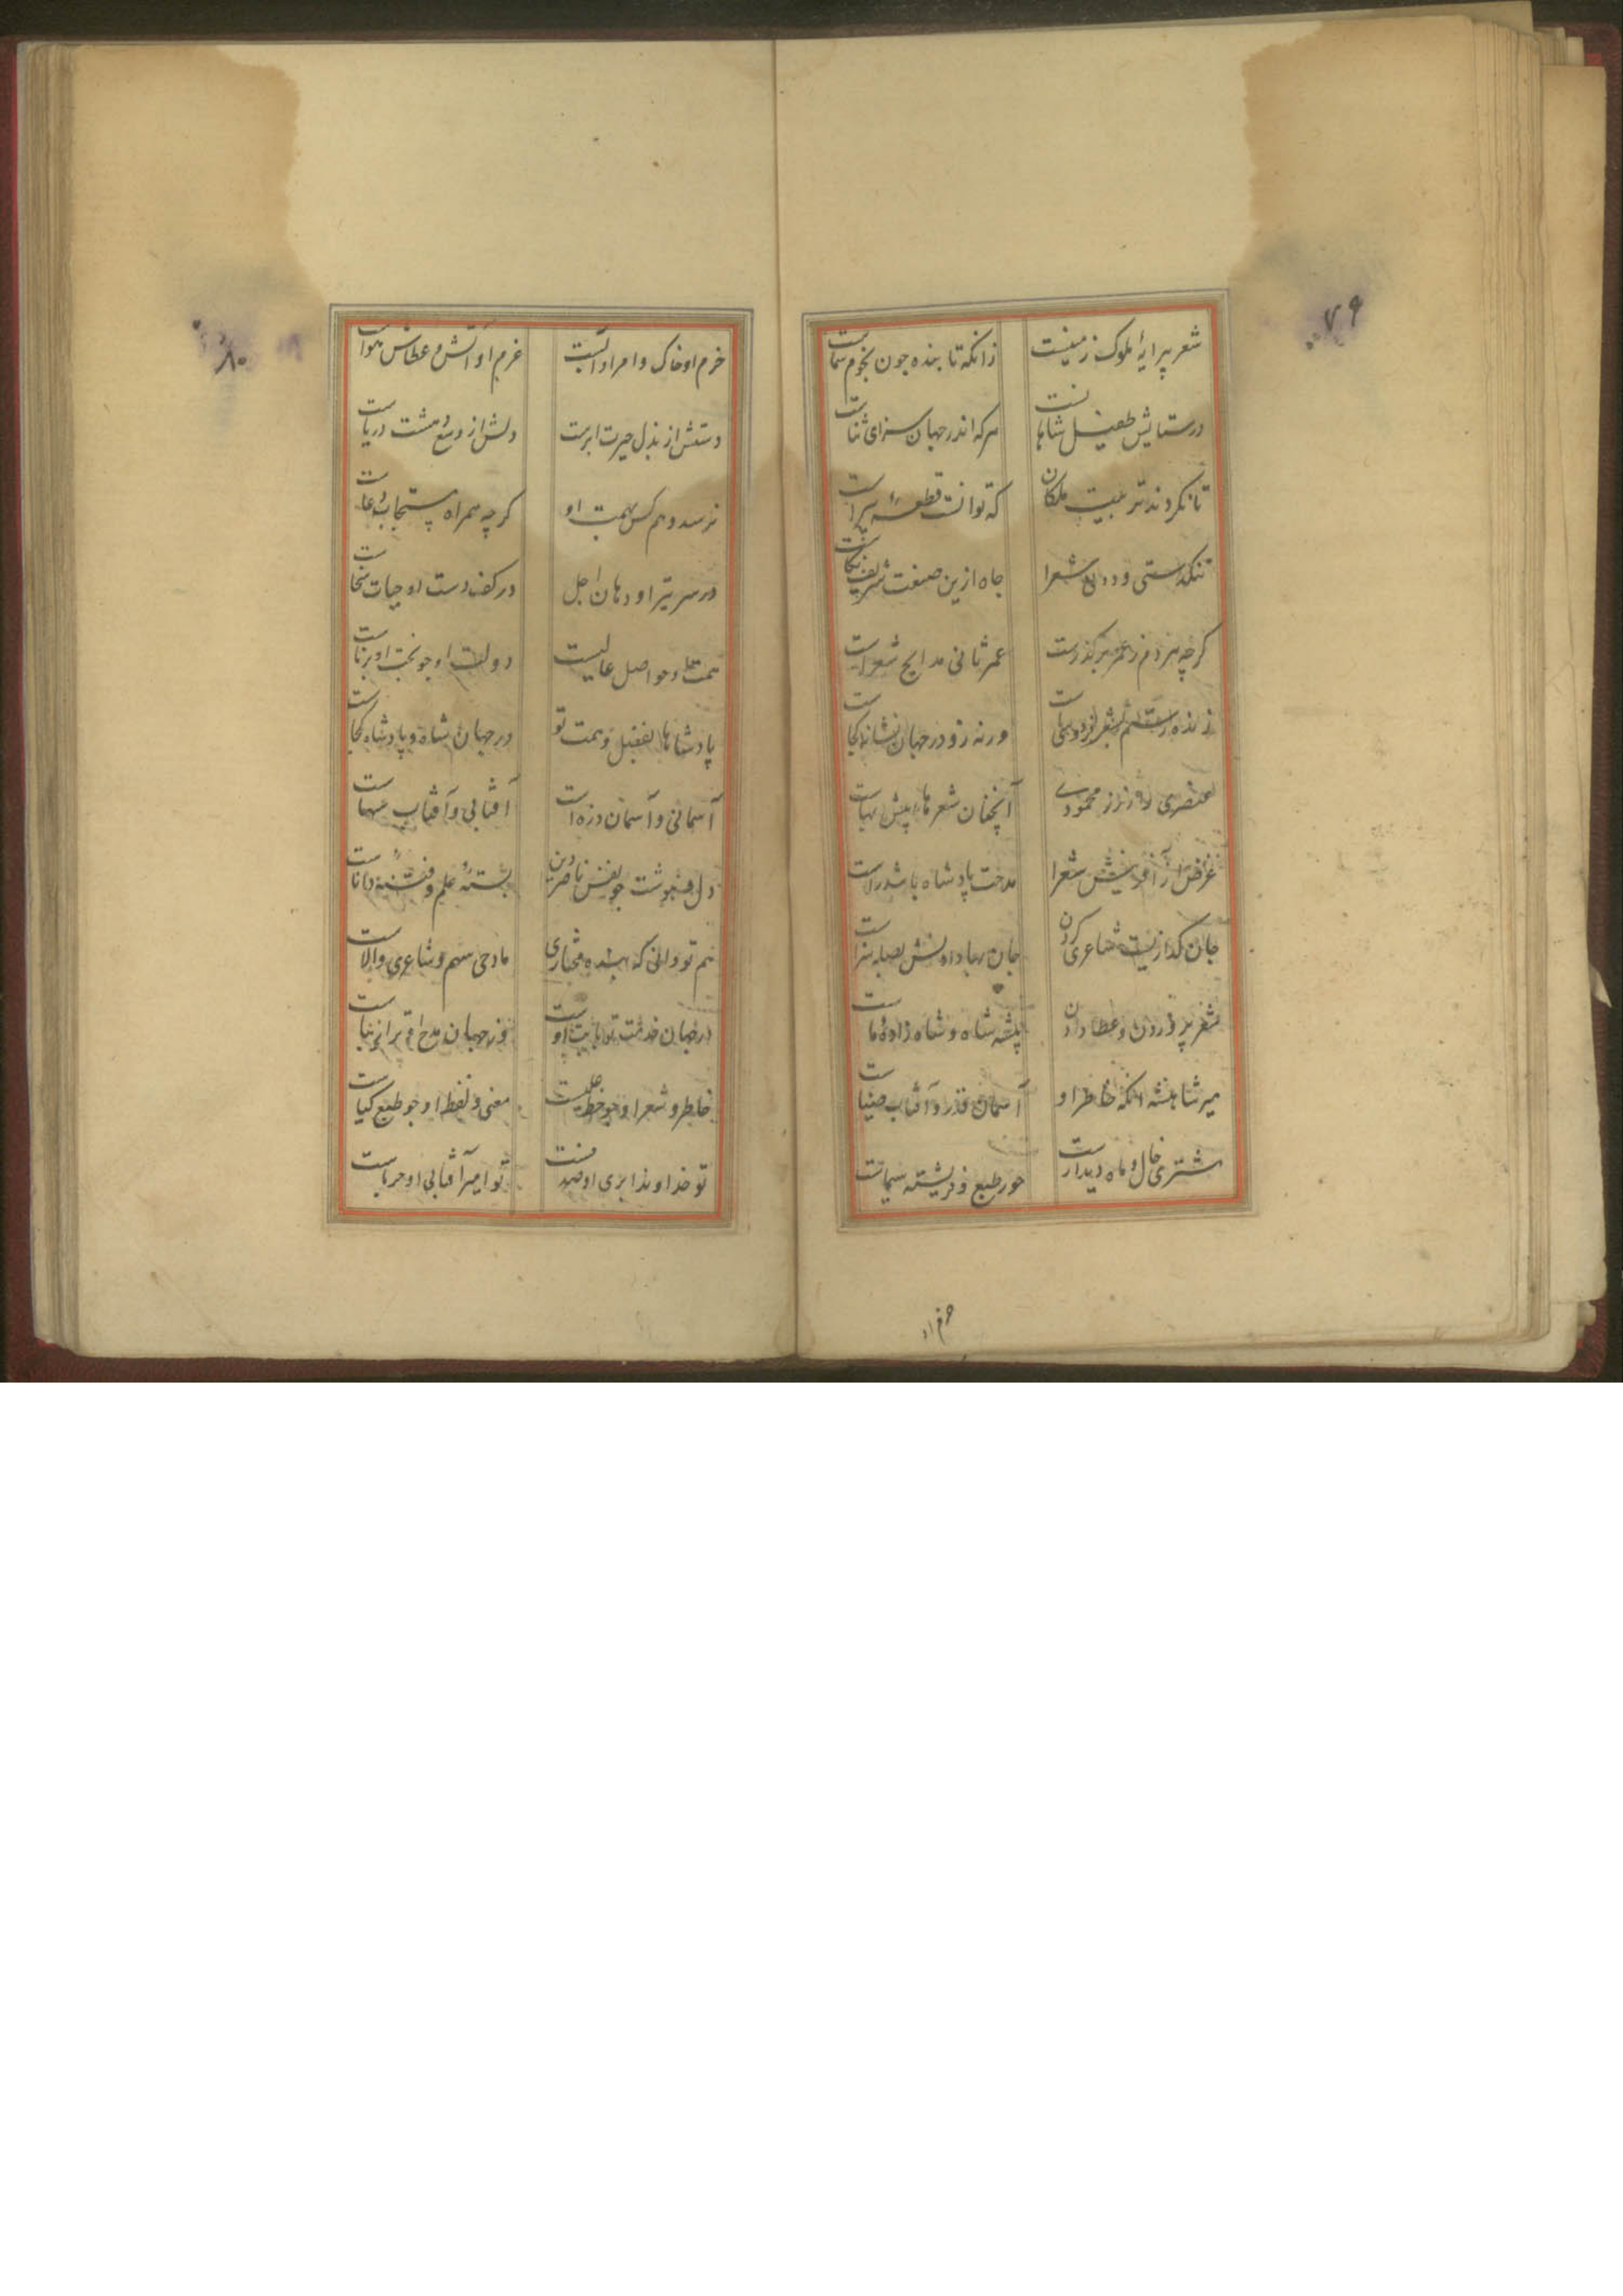 ۷۹
شعر پیرایهٔ ملوک زمینست زانکه تابنده چون نجوم سماست
در ستایش طفیل شاهانست هرکه اندر جهان سزای ثناست
تا نکردند تربیت ملکان که توانست قطعهٔ پیراست
تنکدستی و شعرا جاه ازین صنعت شریف
کرچه مردم ز عمر بر کذرست عمر ثانی مدایح شعراست
زنده رستم بشعر فردوسیست ورنه زو در جهان نشانه کجاست
عنصری را ز زر محمودی آنچنان شعرهای پیش بهاست
غرض از آفرینش شعرا مدحت پادشاه باشد راست
جان کدازیست شاعری کردن جان بها دادنش بصله سزاست
شعر پروردن و عطا دادن پیشه شاه و شاه زادهٔ ماست
میر شاهنشه آنکه خاطر او آسمان قدر و آفتاب ضیاست
مشتری خال و ماه دیدارست حور طبع و فریشته سیماست
حزم او
۸۰
حزم او خاک و امر او آبست عزم او آتش و عطاش هواست
دستش از بذل حیرت ابرست دلش از وسع هشت دریاست
نرسد وهم کس بهمت او کرچه همراه مستجاب دعاست
در سر تیر او دهان اجل در کف دست او حیات سخاست
همت او چو اصل عالیست دولت او چو بخت او برناست
پادشاها بفضل و همت تو در جهان شاه و پادشاه کجاست
آسمانی و آسمان دره است آفتابی و آفتاب سهاست
دل هوشت چو نفس ناصر دین بستهٔ علم و فتنهٔ داناست
هم تو دانی که بنده مختاری مادحی سهم و شاعری والاست
در جهان خدمت تو بابت او وز جهان مدح او ترا زیباست
خاطر و شعر او چو معنی و لفظ او چو طبع کیاست
تو خداوند ابری او صدفست تو امیر آفتابی او حرباست